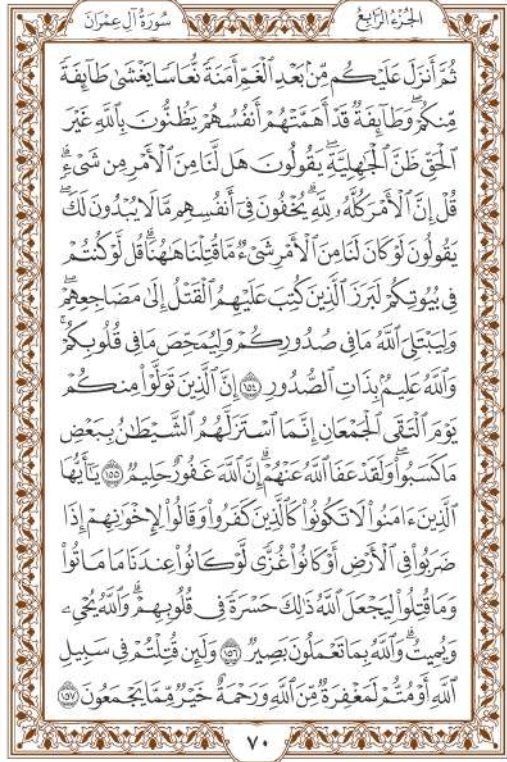 الجُزْءُ الرَّابِعُ
سُورَةُ آلِ عِمْرَانَ
ثُمَّ أَنزَلَ عَلَيْكُم مِّنۢ بَعْدِ ٱلْغَمِّ أَمَنَةً نُّعَاسًا يَغْشَىٰ طَآئِفَةً
مِّنكُمْ ۖ وَطَآئِفَةٌ قَدْ أَهَمَّتْهُمْ أَنفُسُهُمْ يَظُنُّونَ بِٱللَّهِ غَيْرَ
ٱلْحَقِّ ظَنَّ ٱلْجَٰهِلِيَّةِ ۖ يَقُولُونَ هَل لَّنَا مِنَ ٱلْأَمْرِ مِن شَىْءٍ ۗ
قُلْ إِنَّ ٱلْأَمْرَ كُلَّهُۥ لِلَّهِ ۗ يُخْفُونَ فِىٓ أَنفُسِهِم مَّا لَا يُبْدُونَ لَكَ ۖ
يَقُولُونَ لَوْ كَانَ لَنَا مِنَ ٱلْأَمْرِ شَىْءٌ مَّا قُتِلْنَا هَٰهُنَا ۗ قُل لَّوْ كُنتُمْ
فِى بُيُوتِكُمْ لَبَرَزَ ٱلَّذِينَ كُتِبَ عَلَيْهِمُ ٱلْقَتْلُ إِلَىٰ مَضَاجِعِهِمْ ۖ
وَلِيَبْتَلِىَ ٱللَّهُ مَا فِى صُدُورِكُمْ وَلِيُمَحِّصَ مَا فِى قُلُوبِكُمْ ۗ
وَٱللَّهُ عَلِيمٌۢ بِذَاتِ ٱلصُّدُورِ ١٥٤ إِنَّ ٱلَّذِينَ تَوَلَّوْا۟ مِنكُمْ
يَوْمَ ٱلْتَقَى ٱلْجَمْعَانِ إِنَّمَا ٱسْتَزَلَّهُمُ ٱلشَّيْطَٰنُ بِبَعْضِ
مَا كَسَبُوا۟ ۖ وَلَقَدْ عَفَا ٱللَّهُ عَنْهُمْ ۗ إِنَّ ٱللَّهَ غَفُورٌ حَلِيمٌ ١٥٥ يَٰٓأَيُّهَا
ٱلَّذِينَ ءَامَنُوا۟ لَا تَكُونُوا۟ كَٱلَّذِينَ كَفَرُوا۟ وَقَالُوا۟ لِإِخْوَٰنِهِمْ إِذَا
ضَرَبُوا۟ فِى ٱلْأَرْضِ أَوْ كَانُوا۟ غُزًّى لَّوْ كَانُوا۟ عِندَنَا مَا مَاتُوا۟
وَمَا قُتِلُوا۟ لِيَجْعَلَ ٱللَّهُ ذَٰلِكَ حَسْرَةً فِى قُلُوبِهِمْ ۗ وَٱللَّهُ يُحْىِۦ
وَيُمِيتُ ۗ وَٱللَّهُ بِمَا تَعْمَلُونَ بَصِيرٌ ١٥٦ وَلَئِن قُتِلْتُمْ فِى سَبِيلِ
ٱللَّهِ أَوْ مُتُّمْ لَمَغْفِرَةٌ مِّنَ ٱللَّهِ وَرَحْمَةٌ خَيْرٌ مِّمَّا يَجْمَعُونَ ١٥٧
٧٠